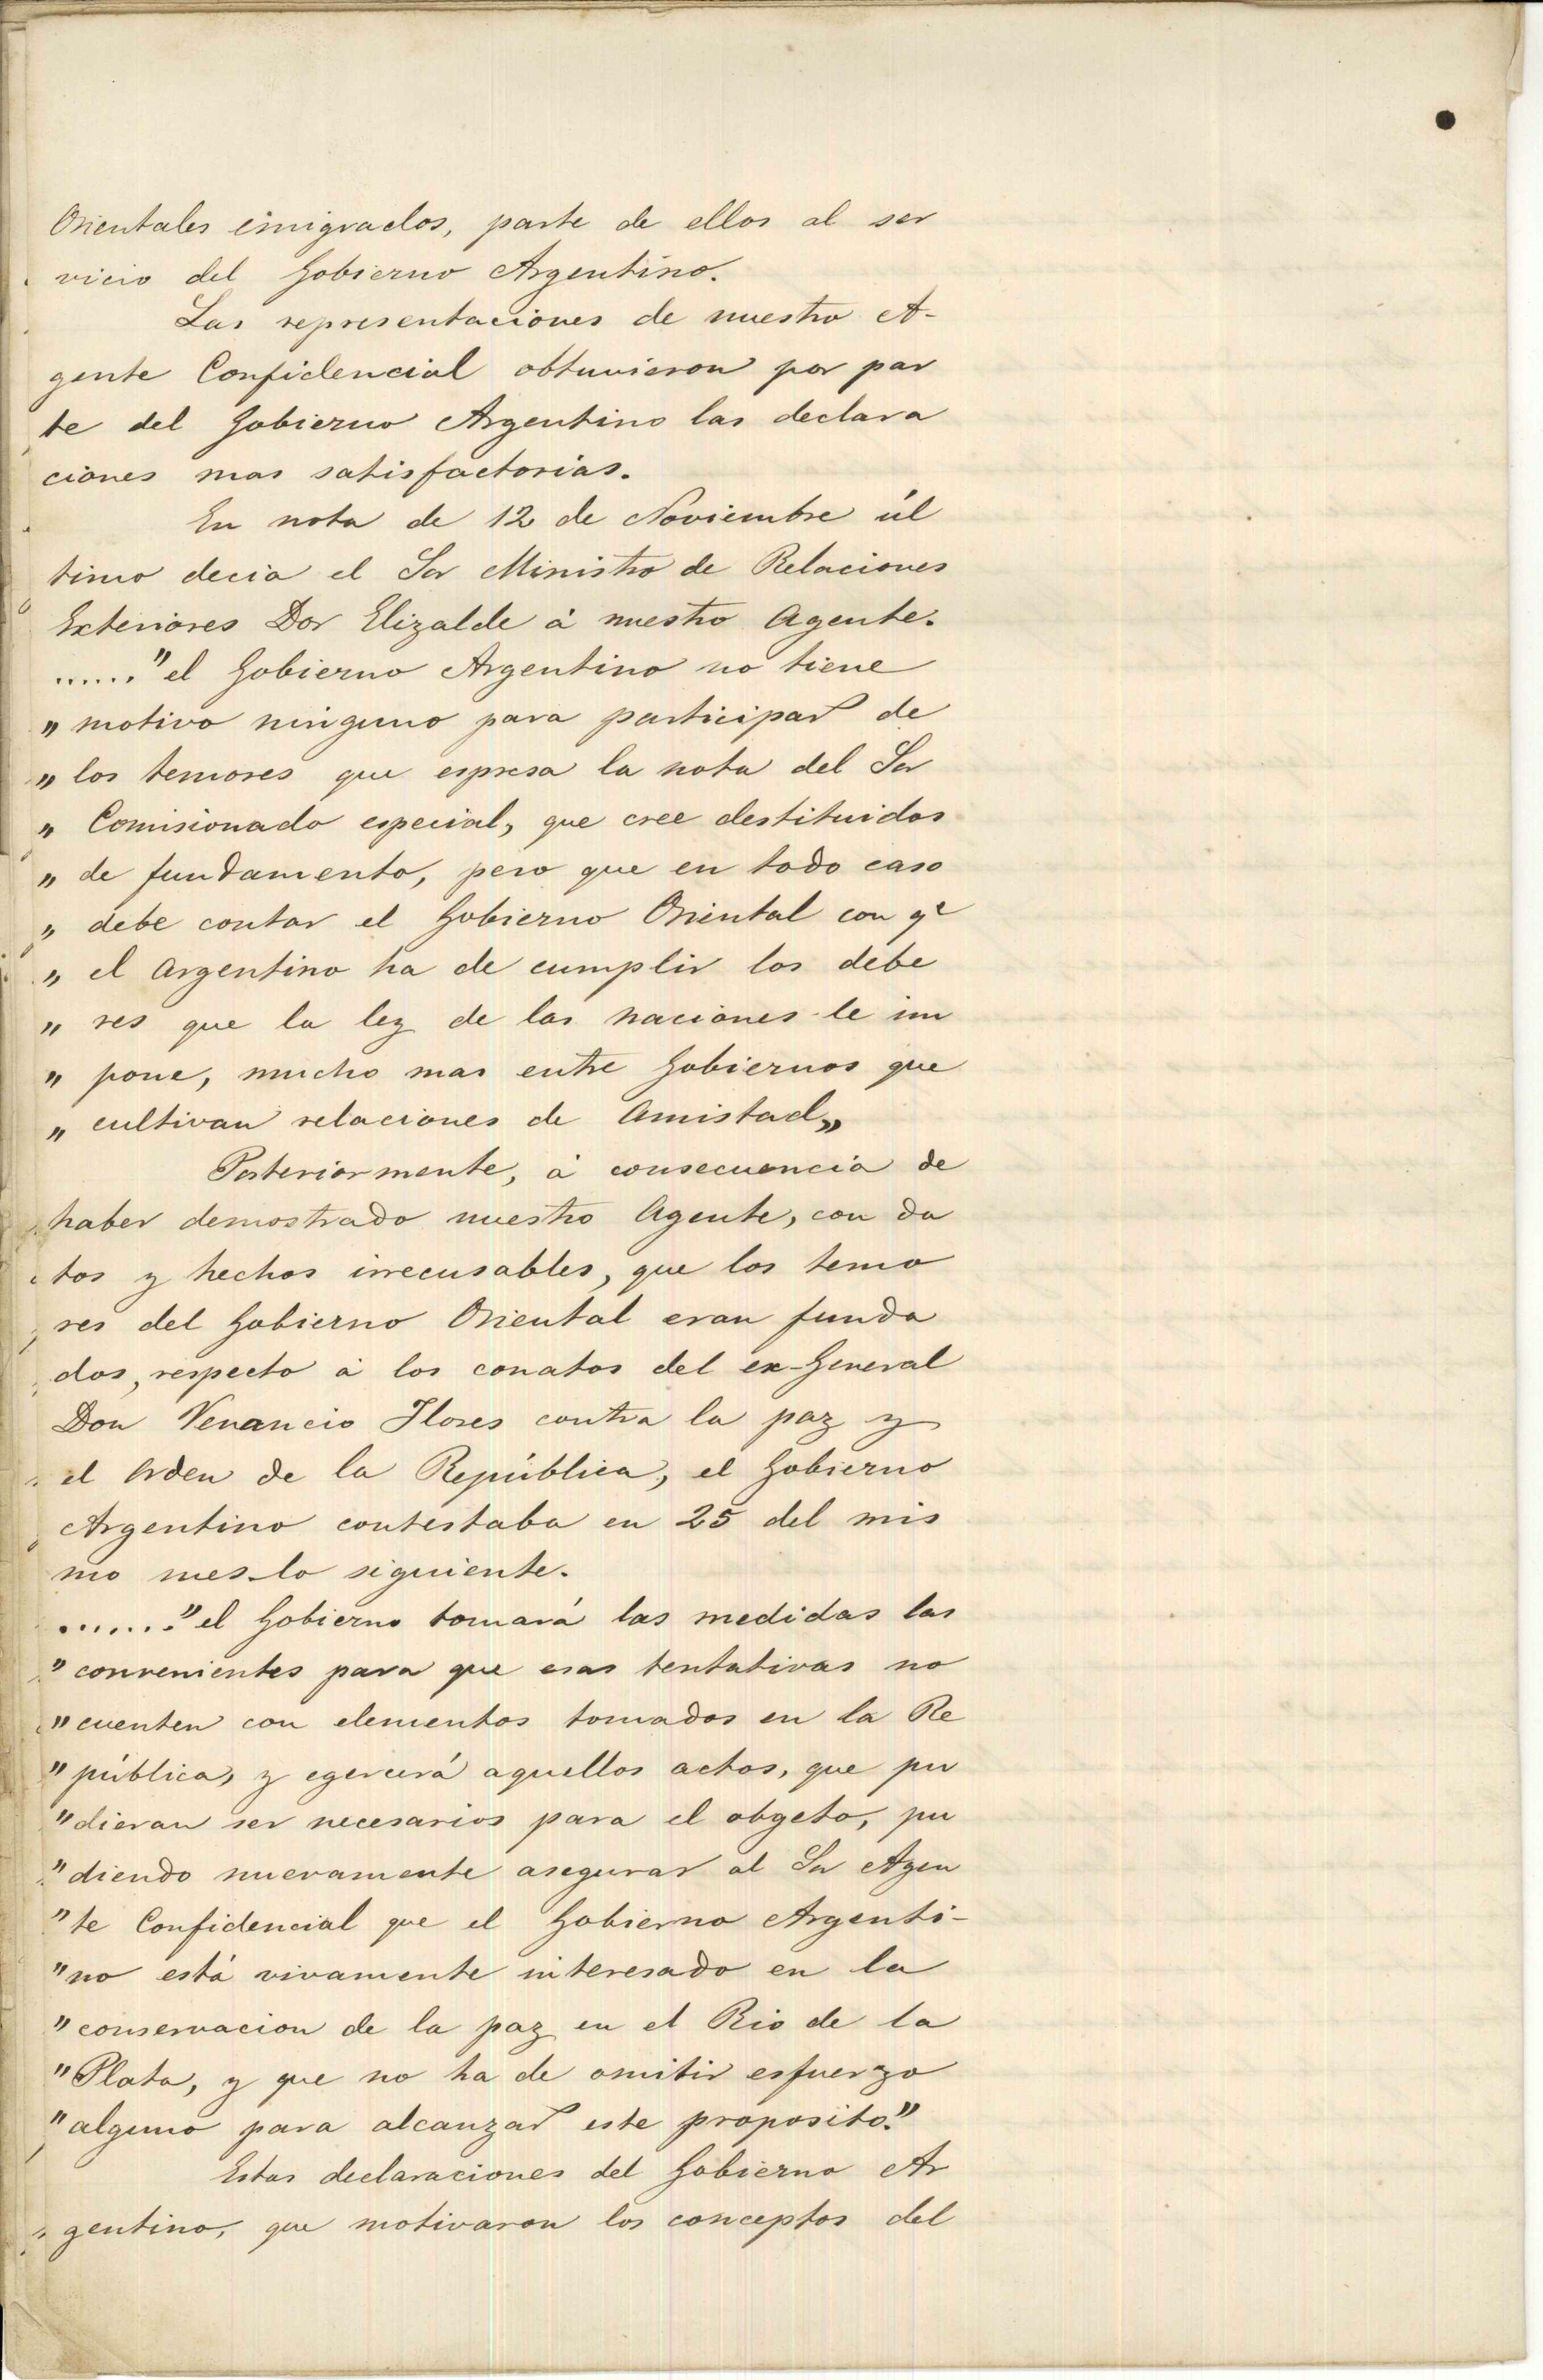 Orientales emigrados, parte de ellos al ser
vicio del Gobierno Argentino.
Las representaciones de nuestro A-
gente Confidencial obtuvieron por par
te del Gobierno Argentino las declara
ciones mas satisfactorias.
En nota de 12 de Noviembre úl
timo decia el Sor Ministro de Relaciones
Exteriores Dor Elizalde á nuestro Agente.
......"el Gobierno Argentino no tiene
" motivo ninguno para participar de
" los temores que espresa la nota del Sor
" Comisionado especial, que cree destituidos
" de fundamento, pero que en todo caso
" debe contar el Gobierno Oriental con qe
" el Argentino ha de cumplir los debe
" res que la ley de las naciones le im
" pone, mucho mas entre Gobiernos que
" cultivan relaciones de Amistad"
Posteriormente, á consecuencia de
haber demostrado nuestro Agente, con da
tos y hechos irrecusables, que los temo
res del Gobierno Oriental eran funda
dos, respecto á los conatos del ex-General
Don Venancio Flores contra la paz y
el Orden de la República, el Gobierno
Argentino contestaba en 25 del mis
mo mes lo siguiente.
......"el Gobierno tomará las medidas las
" convenientes para que esas tentativas no
" cuenten con elementos tomados en la Re
" pública, y egercerá aquellos actos, que pu
" dieran ser necesarios para el obgeto, pu
" diendo nuevamente asegurar al Sor Agen
" te Confidencial que el Gobierno Argenti-
" no está vivamente interesado en la
" conservacion de la paz en el Rio de la
" Plata, y que no ha de omitir esfuerzo
" alguno para alcanzar este proposito."
Estas declaraciones del Gobierno Ar
gentino, que motivaron los conceptos del